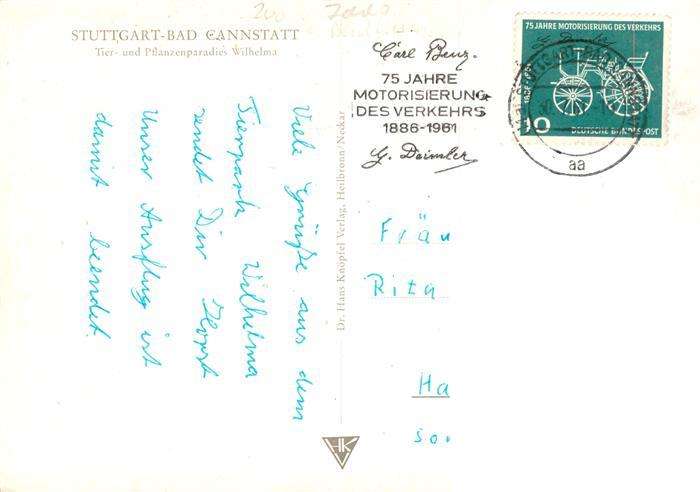 STUTTGART-BAD CANNSTATT
Tier- und Pflanzenparadies Wilhelma
Viele Grüße aus dem
Tierpark Wilhelma
sendet Dir Horst
Unser Ausflug ist
damit beendet.
Dr. Hans Knöpfel Verlag, Heilbronn/Neckar
HK
Carl Benz.
75 JAHRE
MOTORISIERUNG
DES VERKEHRS
1886-1961
G. Daimler
75 JAHRE MOTORISIERUNG DES VERKEHRS
1886-1961
10
DEUTSCHE BUNDESPOST
aa
Fräu
Rita
Ha